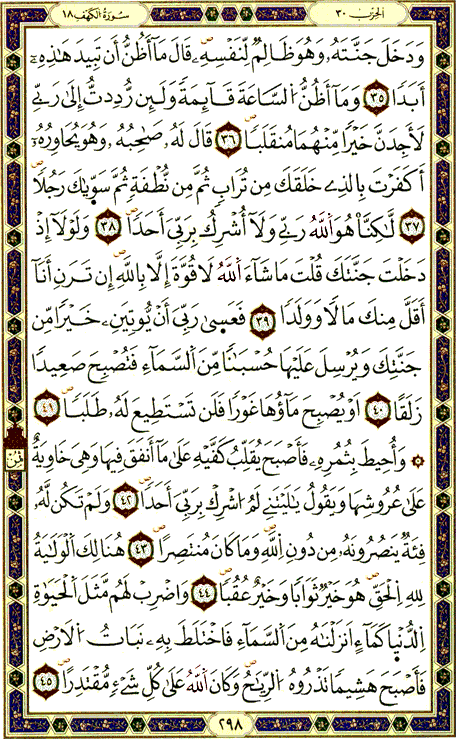 الحزب ٣٠
سورة الكهف ١٨
وَدَخَلَ جَنَّتَهُۥ وَهُوَ ظَالِمٌ لِّنَفْسِهِۦ قَالَ مَا أَظُنُّ أَن تَبِيدَ هَٰذِهِۦ
أَبَدًا ٣٥ وَمَا أَظُنُّ اُ۬لسَّاعَةَ قَآئِمَةً وَلَئِن رُّدِدتُّ إِلَىٰ رَبِّے
لَأَجِدَنَّ خَيْرًا مِّنْهُمَا مُنقَلَبًا ٣٦ قَالَ لَهُۥ صَٰحِبُهُۥ وَهُوَ يُحَاوِرُهُۥ
أَكَفَرْتَ بِالذِے خَلَقَكَ مِن تُرَابٍ ثُمَّ مِن نُّطْفَةٍ ثُمَّ سَوّ۪يٰكَ رَجُلًا
٣٧ لَّٰكِنَّا۠ هُوَ اَ۬للَّهُ رَبِّے وَلَا أُشْرِكُ بِرَبِّيَ أَحَدًا ٣٨ وَلَوْلَا إِذْ
دَخَلْتَ جَنَّتَكَ قُلْتَ مَا شَآءَ اَ۬للَّهُ لَا قُوَّةَ إِلَّا بِاللَّهِ إِن تَرَنِ أَنَا
أَقَلَّ مِنكَ مَالًا وَوَلَدًا ٣٩ فَعَسىٰ رَبِّيَ أَنْ يُّوتِيَنِۦ خَيْرًا مِّن
جَنَّتِكَ وَيُرْسِلَ عَلَيْهَا حُسْبَانًا مِّنَ اَ۬لسَّمَآءِ فَتُصْبِحَ صَعِيدًا
زَلَقًا ٤٠ أَوْ يُصْبِحَ مَآؤُهَا غَوْرًا فَلَن تَسْتَطِيعَ لَهُۥ طَلَبًا ٤١
۞ وَأُحِيطَ بِثُمُرِهِۦ فَأَصْبَحَ يُقَلِّبُ كَفَّيْهِ عَلَىٰ مَا أَنفَقَ فِيهَا وَهِيَ خَاوِيَةٌ
عَلَىٰ عُرُوشِهَا وَيَقُولُ يَٰلَيْتَنِے لَمُ أُشْرِكْ بِرَبِّيَ أَحَدًا ٤٢ وَلَمْ تَكُن لَّهُۥ
فِئَةٌ يَنصُرُونَهُۥ مِن دُونِ اِ۬للَّهِ وَمَا كَانَ مُنتَصِرًا ٤٣ هُنَالِكَ اَ۬لْوَلَٰيَةُ
لِلهِ اِ۬لْحَقِّ هُوَ خَيْرٌ ثَوَابًا وَخَيْرٌ عُقُبًا ٤٤ وَاضْرِبْ لَهُم مَّثَلَ اَ۬لْحَيَوٰةِ
اِ۬لدُّنْيَا كَمَآءٍ اَنزَلْنَٰهُ مِنَ اَ۬لسَّمَآءِ فَاخْتَلَطَ بِهِۦ نَبَاتُ اُ۬لَارْضِ
فَأَصْبَحَ هَشِيمًا تَذْرُوهُ اُ۬لرِّيَٰحُ وَكَانَ اَ۬للَّهُ عَلَىٰ كُلِّ شَےْءٍ مُّقْتَدِرًا ٤٥
٢٩٨